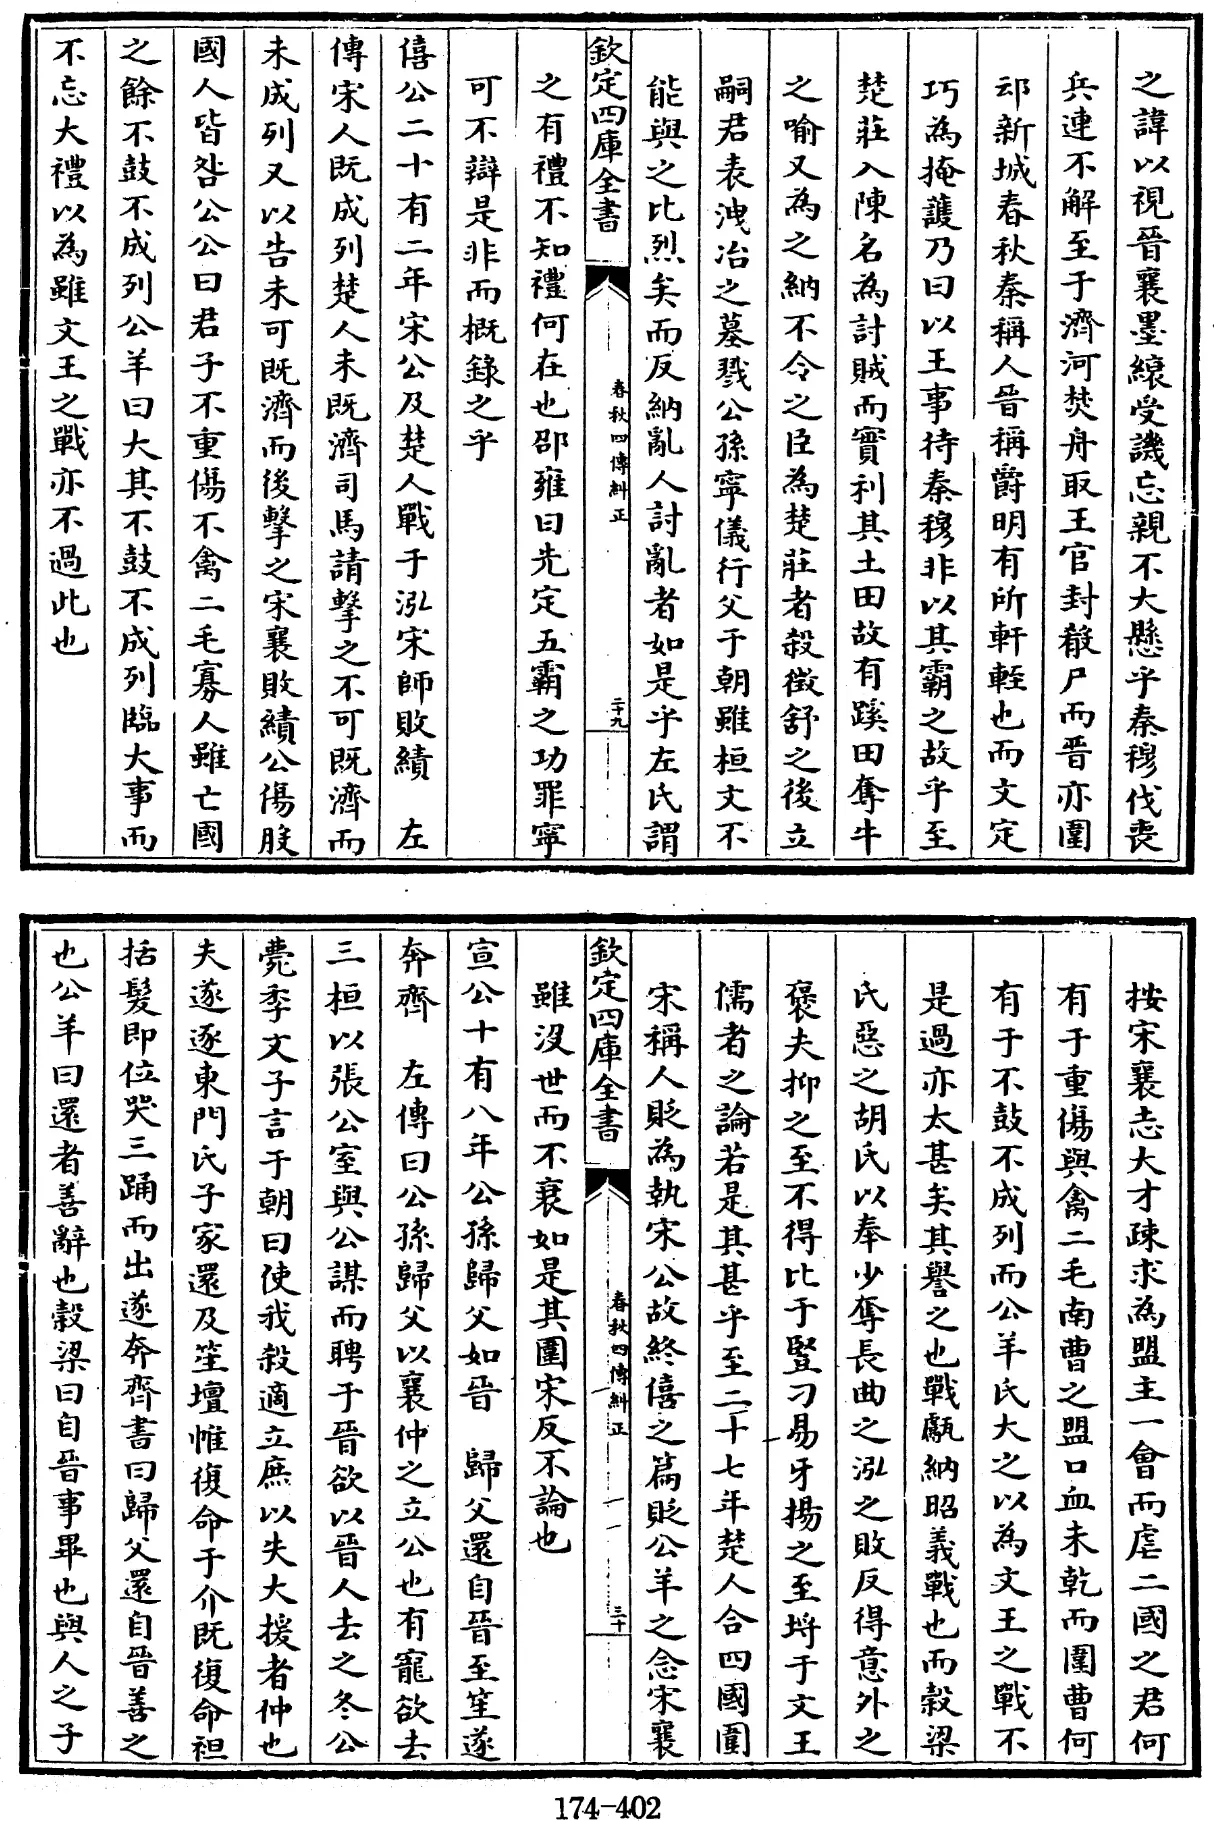 之諱以視晉襄墨縗受譏忘親不大懸乎秦穆伐喪
兵連不解至于濟河焚舟取王官封殽尸而晉亦圍
邧新城春秋秦稱人晉稱爵明有所軒輊也而文定
巧為掩護乃曰以王事待秦穆非以其霸之故乎至
楚莊入陳名為討賊而實利其土田故有蹊田奪牛
之喻又為之納不令之臣為楚莊者殺徵舒之後立
嗣君表洩冶之墓戮公孫寧儀行父于朝雖桓文不
能與之比烈矣而反納亂人討亂者如是乎左氏謂
欽定四庫全書
春秋四傳糾正
二十九
之有禮不知禮何在也邵雍曰先定五霸之功罪寧
可不辯是非而概錄之乎
僖公二十有二年宋公及楚人戰于泓宋師敗績 左
傳宋人既成列楚人未既濟司馬請擊之不可既濟而
未成列又以告未可既濟而後擊之宋襄敗績公傷股
國人皆咎公公曰君子不重傷不禽二毛寡人雖亡國
之餘不鼓不成列公羊曰大其不鼓不成列臨大事而
不忘大禮以為雖文王之戰亦不過此也
按宋襄志大才疎求為盟主一會而虐二國之君何
有于重傷與禽二毛南曹之盟口血未乾而圍曹何
有于不鼓不成列而公羊氏大之以為文王之戰不
是過亦太甚矣其譽之也戰甗納昭義戰也而穀梁
氏惡之胡氏以奉少奪長曲之泓之敗反得意外之
褒夫抑之至不得比于豎刁易牙揚之至埒于文王
儒者之論若是其甚乎至二十七年楚人合四國圍
宋稱人貶為執宋公故終僖之篇貶公羊之念宋襄
欽定四庫全書
春秋四傳糾正
三十
雖沒世而不衰如是其圍宋反不論也
宣公十有八年公孫歸父如晉 歸父還自晉至笙遂
奔齊 左傳曰公孫歸父以襄仲之立公也有寵欲去
三桓以張公室與公謀而聘于晉欲以晉人去之冬公
薨季文子言于朝曰使我殺適立庶以失大援者仲也
夫遂逐東門氏子家還及笙壇帷復命于介既復命袒
括髮即位哭三踊而出遂奔齊書曰歸父還自晉善之
也公羊曰還者善辭也穀梁曰自晉事畢也與人之子
174-402